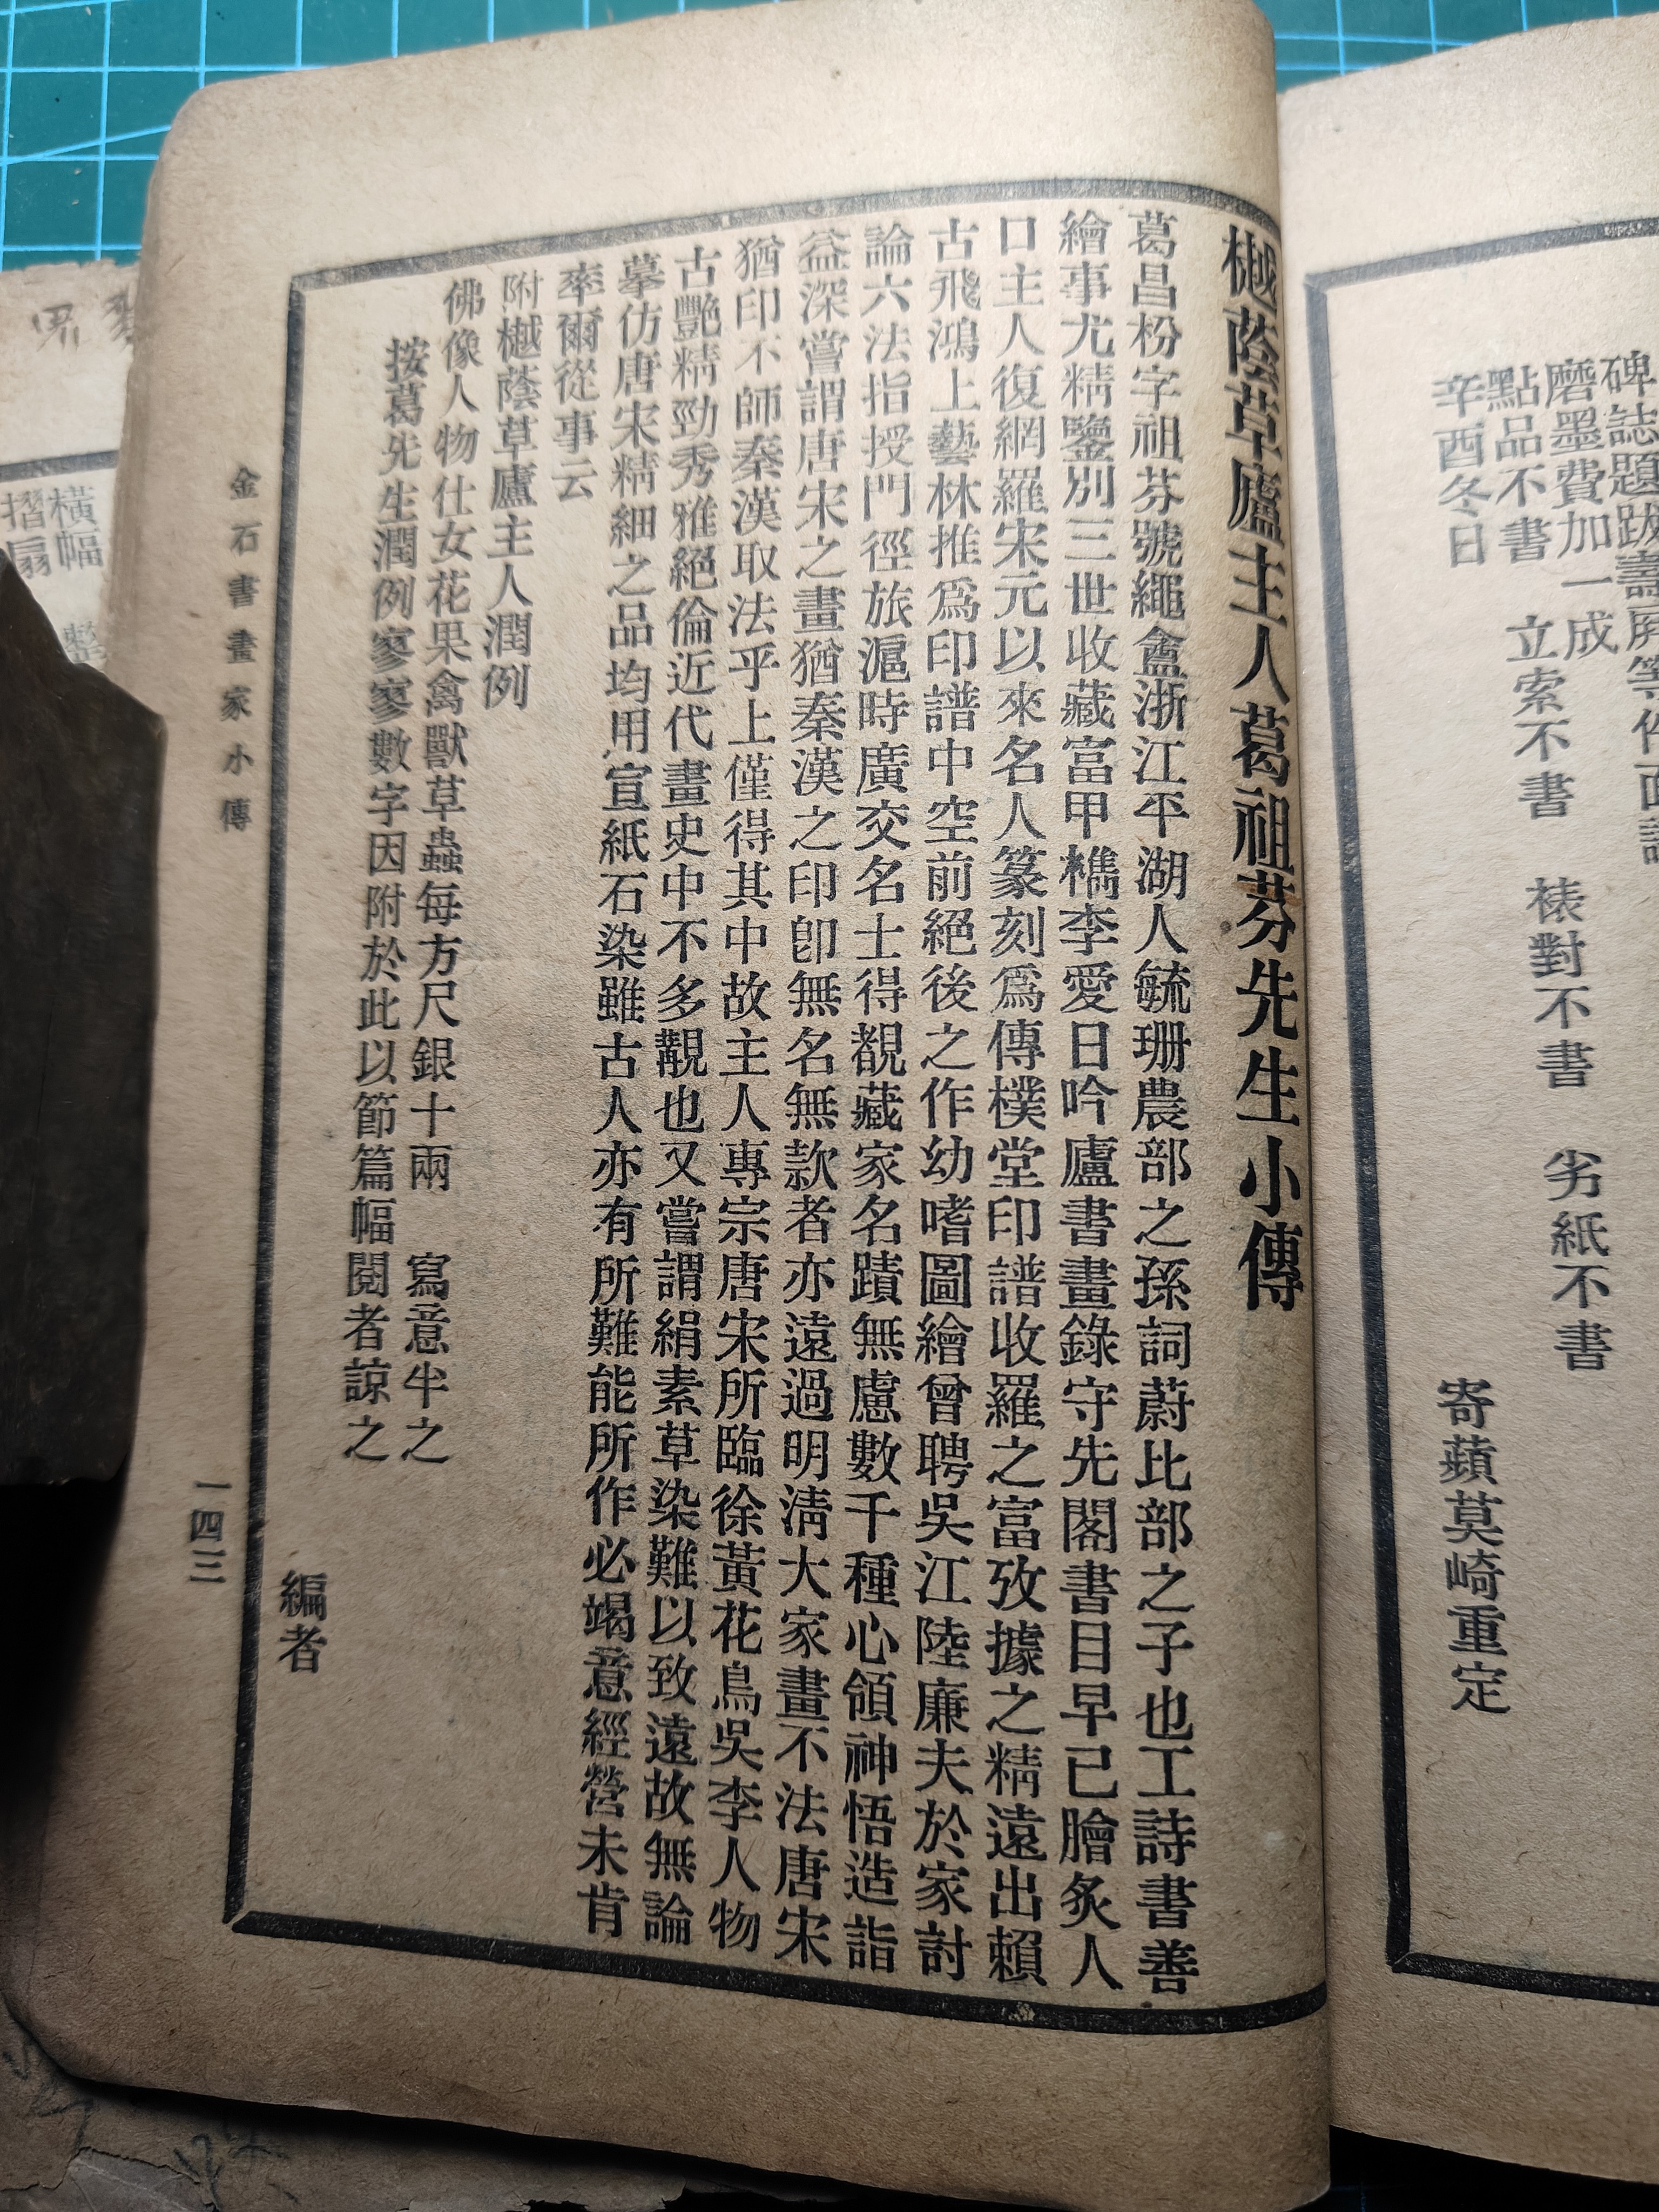 碑誌題跋壽屏等件面議
磨墨費加一成
點品不書　立索不書　裱對不書　劣紙不書
辛酉冬日　寄蘋莫崎重定
樾蔭草廬主人葛祖芬先生小傳
葛昌枌字祖芬號繩盦浙江平湖人毓珊農部之孫詞蔚比部之子也工詩書善
繪事尤精鑒別三世收藏富甲檇李愛日吟廬書畫錄守先閣書目早已膾炙人
口主人復網羅宋元以來名人篆刻爲傳樸堂印譜收羅之富攷據之精遠出賴
古飛鴻上藝林推爲印譜中空前絕後之作幼嗜圖繪曾聘吳江陸廉夫於家討
論六法指授門徑旅滬時廣交名士得覩藏家名蹟無慮數千種心領神悟造詣
益深嘗謂唐宋之畫猶秦漢之印卽無名無款者亦遠過明淸大家畫不法唐宋
猶印不師秦漢取法乎上僅得其中故主人專宗唐宋所臨徐黃花鳥吳李人物
古艷精勁秀雅絕倫近代畫史中不多覯也又嘗謂絹素草染難以致遠故無論
摹仿唐宋精細之品均用宣紙石染雖古人亦有所難能所作必竭意經營未肯
率爾從事云
附樾蔭草廬主人潤例
佛像人物仕女花果禽獸草蟲每方尺銀十兩　寫意半之
按葛先生潤例寥寥數字因附於此以節篇幅閱者諒之
編者
金石書畫家小傳
一四三
橫幅　整
摺扇